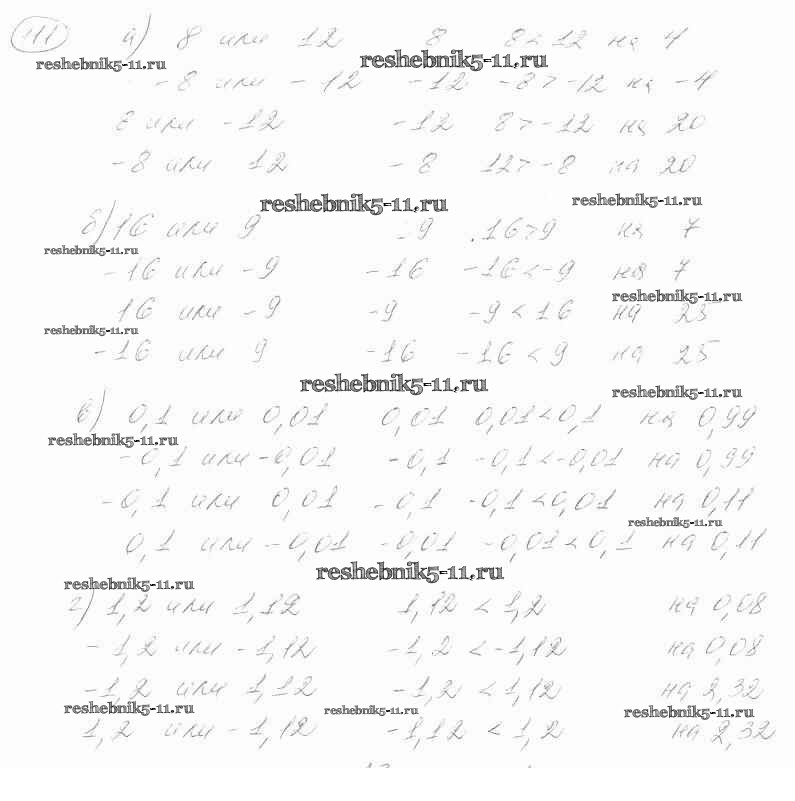 111 а) 8 или 12 8 8 < 12 на 4
reshebnik5-11.ru reshebnik5-11.ru
-8 или -12 -12 -8 > -12 на -4
8 или -12 -12 8 > -12 на 20
-8 или 12 -8 12 > -8 на 20
reshebnik5-11.ru reshebnik5-11.ru
б) 16 или 9 9 16 > 9 на 7
reshebnik5-11.ru
-16 или -9 -16 -16 < -9 на 7
reshebnik5-11.ru
16 или -9 -9 -9 < 16 на 25
reshebnik5-11.ru
-16 или 9 -16 -16 < 9 на 25
reshebnik5-11.ru reshebnik5-11.ru
в) 0,1 или 0,01 0,01 0,01 < 0,1 на 0,99
reshebnik5-11.ru
-0,1 или -0,01 -0,1 -0,1 < -0,01 на 0,99
-0,1 или 0,01 -0,1 -0,1 < 0,01 на 0,11
reshebnik5-11.ru
0,1 или -0,01 -0,01 -0,01 < 0,1 на 0,11
reshebnik5-11.ru
reshebnik5-11.ru
г) 1,2 или 1,12 1,12 < 1,2 на 0,08
-1,2 или -1,12 -1,2 < -1,12 на 0,08
-1,2 или 1,12 -1,2 < 1,12 на 2,32
reshebnik5-11.ru reshebnik5-11.ru reshebnik5-11.ru
1,2 или -1,12 -1,12 < 1,2 на 2,32